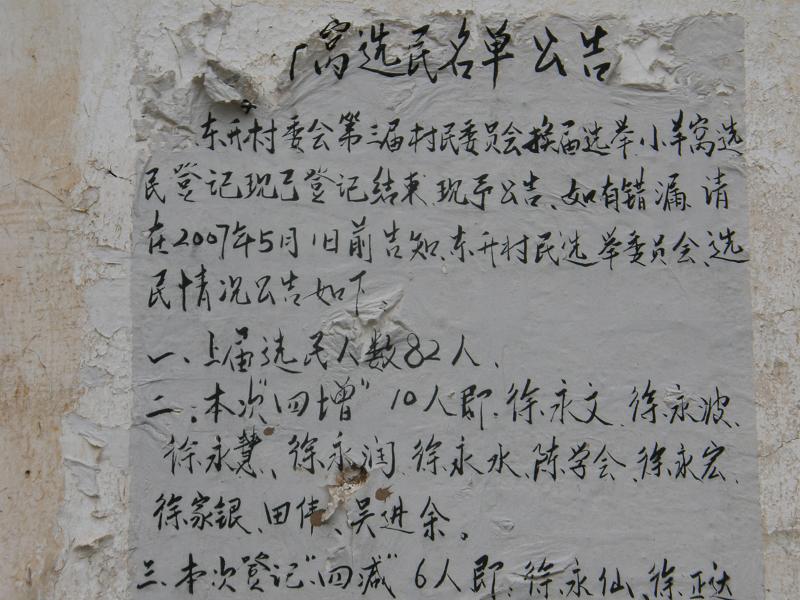 窝选民名单公告
东升村委会第三届村民委员会换届选举,小羊窝选
民登记现已登记结束,现予公告、如有错漏、请
在2007年5月1日前告知、东升村民选举委员会、选
民情况公告如下、
一、上届选民人数82人、
二、本次"四增"10人即、徐永文、徐永波、
徐永慧、徐永润、徐永水、陈学会、徐永宏、
徐家银、田伟、吴进余。
三、本次登记"四减"6人即:徐永仙、徐正达